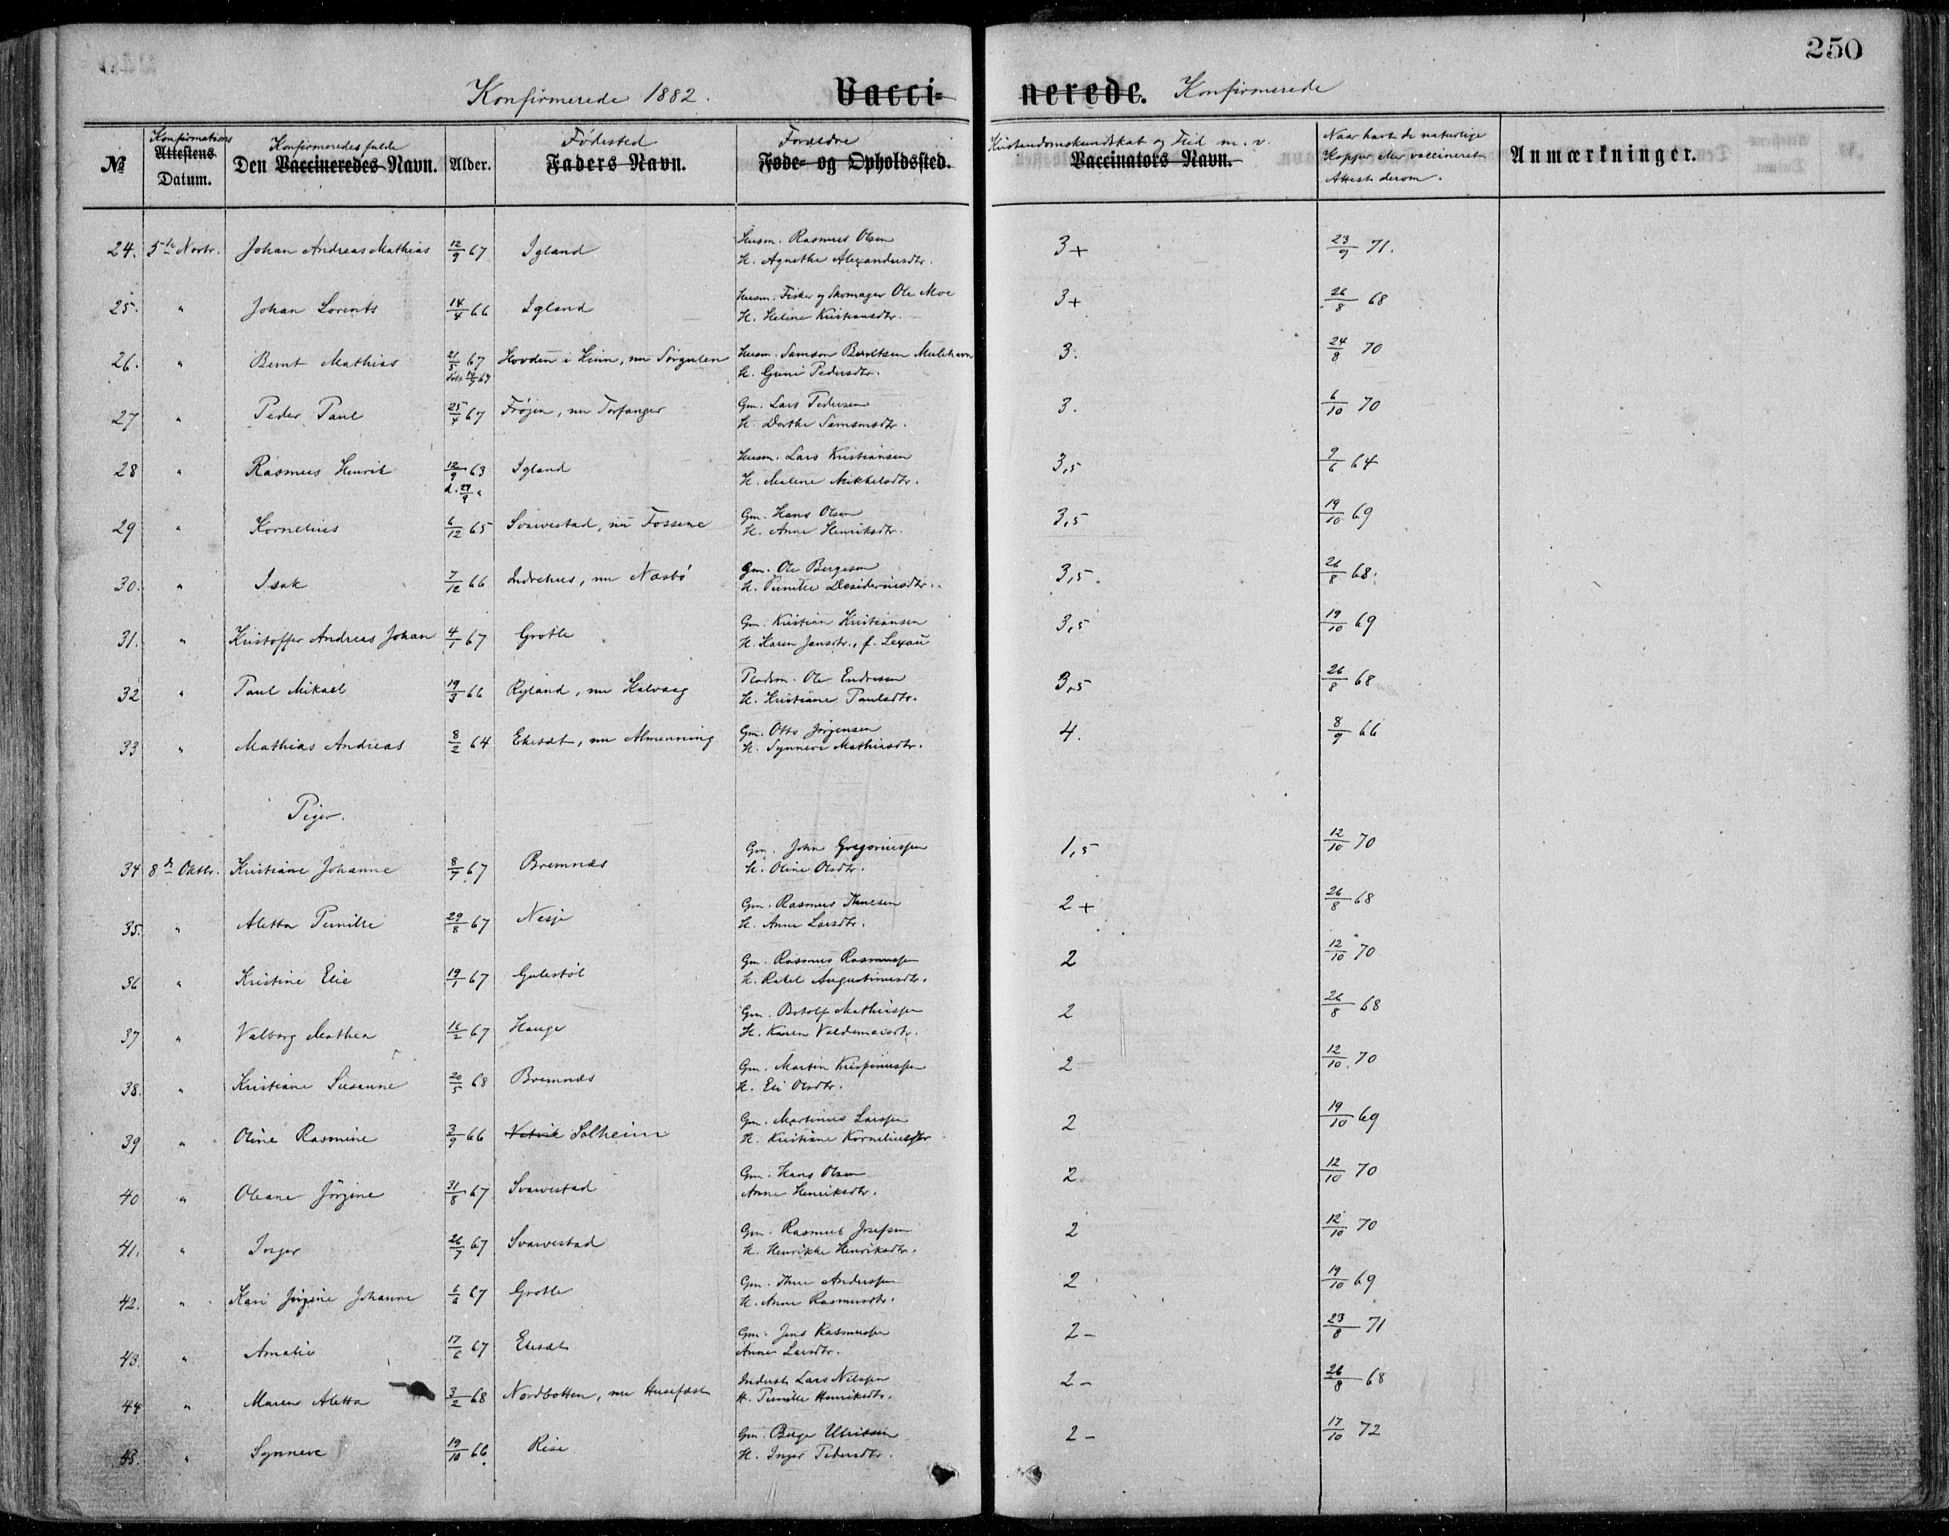 250
Konfirmerede 1882. Vacci- nerede. Konfirmerede
№ Konfirmations Attestens Datum. Den Konfirmeredes fulde Vaccineredes Navn. Alder. Fødested Faders Navn. Forældre Føde- og Opholdssted. Kristendomskundskab og Flid m. v. Vaccinators Navn. Naar havt de naturlige Kopper eller vaccineret Attest derom. Anmærkninger.
24. 5te Novbr. Johan Andreas Mathias 12/9 67 Igland Husm. Rasmus Olsen 3+ 23/9 71.
H. Agnethe Alexandersdtr.
25. " Johan Lorents 14/4 66 Igland Husm. Fisker og Skomager Ole Moe 3+ 26/8 68
H. Heline Kristiansdtr.
26. " Bernt Mathias 21/5 67 Hovden i Kinn, nu Sørgulen Husm. Samson Berntsen Mulehavn 3. 24/8 70
H. Guni Pedersdtr.
27 " Peder Paul 25/4 67 Frøjen, nu Torfanger Gm. Lars Pedersen 3. 6/10 70
H. Dorthe Samsonsdtr.
28 " Rasmus Henrik 12/9 63 Igland Husm. Lars Kristiansen 3,5 9/6 64
d. 27/9 " H. Malene Mikkelsdtr.
29 " Kornelius 6/12 65 Svarvestad, nu Fossene Gm. Hans Olsen 3,5 19/10 69
H. Anne Henriksdtr.
30. " Isak 7/12 66 Indrehus, nu Næsbø Gm. Ole Børgeson 3,5. 26/8 68.
H. Pernille Desideriusdtr.
31. " Kristoffer Andreas Johan 4/1 67 Grotle Gm. Kristian Kristiansen 3,5 19/10 69
H. Karen Jansdtr., f. Lexau
32 " Paul Mikael 19/3 66 Ryland, nu Kalvaag Pladsm. Ole Endresen 3,5 26/8 68
H. Kristiane Paulsdtr.
33 " Mathias Andreas 8/2 64 Ekesæt, nu Almenning Gm. Otto Jørgensen 4. 8/9 66
H. Synneve Mathiasdtr.
Piger.
34 8de Oktbr. Kristiane Johanne 8/7 67 Bremnæs Gm. John Gregoriussen 1,5 12/10 70
H. Oline Olsdtr.
35. " Aletta Pernille 29/8 67 Nesje Gm. Rasmus Thuesen 2+ 26/8 68
H. Anne Larsdtr.
36 " Kristine Elie 19/1 67 Gulestøl Gm. Rasmus Rasmussen 2 12/10 70
H. Rakel Augustinusdtr.
37 " Valborg Mathea 16/2 67 Hauge Gm. Botolf Mathiassen 2 26/8 68
H. Karen Valdemarsdtr.
38. " Kristiane Susanne 20/5 68 Bremnæs Gm. Martin Krispinussen 2 12/10 70
H. Eli Olsdtr.
39 " Oline Rasmine 3/9 66 Vetvik Solheim Gm. Martinus Larssen 2 19/10 69
H. Kristiane Korneliusdtr
40 " Oleane Jørgine 31/8 67 Svarvestad Gm. Hans Olsen 2 12/10 70
Anne Henriksdtr.
41. " Inger 26/7 67 Svarvestad Gm. Rasmus Josefsen 2 12/10 70
H. Henrikke Henriksdtr.
42. " Kari Jørgine Johanne 6/6 67 Grotle Gm. Thue Anderssen 2 19/10 69
H. Anne Rasmusdtr.
43. " Amalie 17/6 67 Ekesæt Gm. Jens Rasmussen 2- 23/8 71
Anne Larsdtr.
44 " Maren Aletta 3/2 68 Nordbotten, nu Husefæst Inderst Lars Nilssen 2- 26/8 68
H. Pernille Henriksdtr.
45. " Synneve 19/10 66. Rise Gm. Børge Ulriksen 2- 17/10 72
H. Inger Pedersdtr.